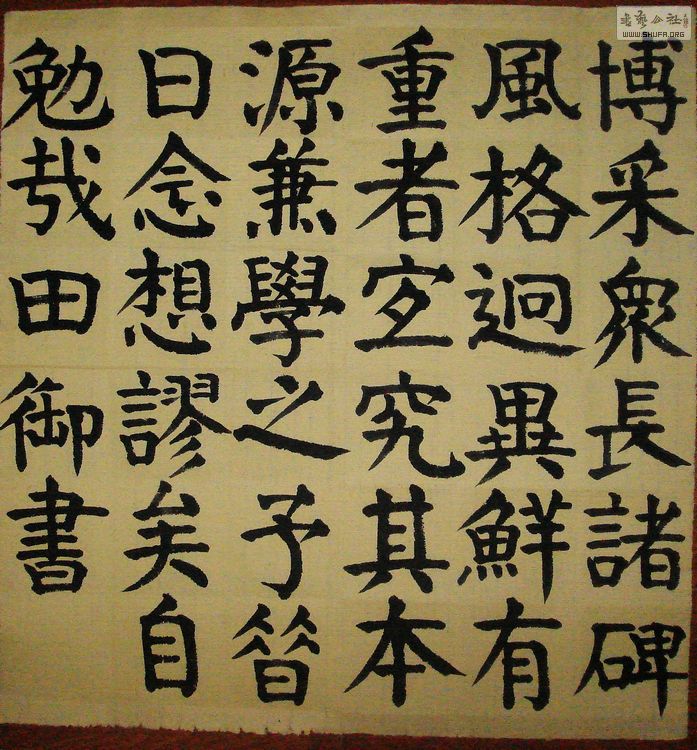 博采衆長諸碑
風格逈異鮮有
重者宐究其本
源兼學之予㫺
日念想謬矣自
勉哉田御書
WWW.SHUFA.ORG